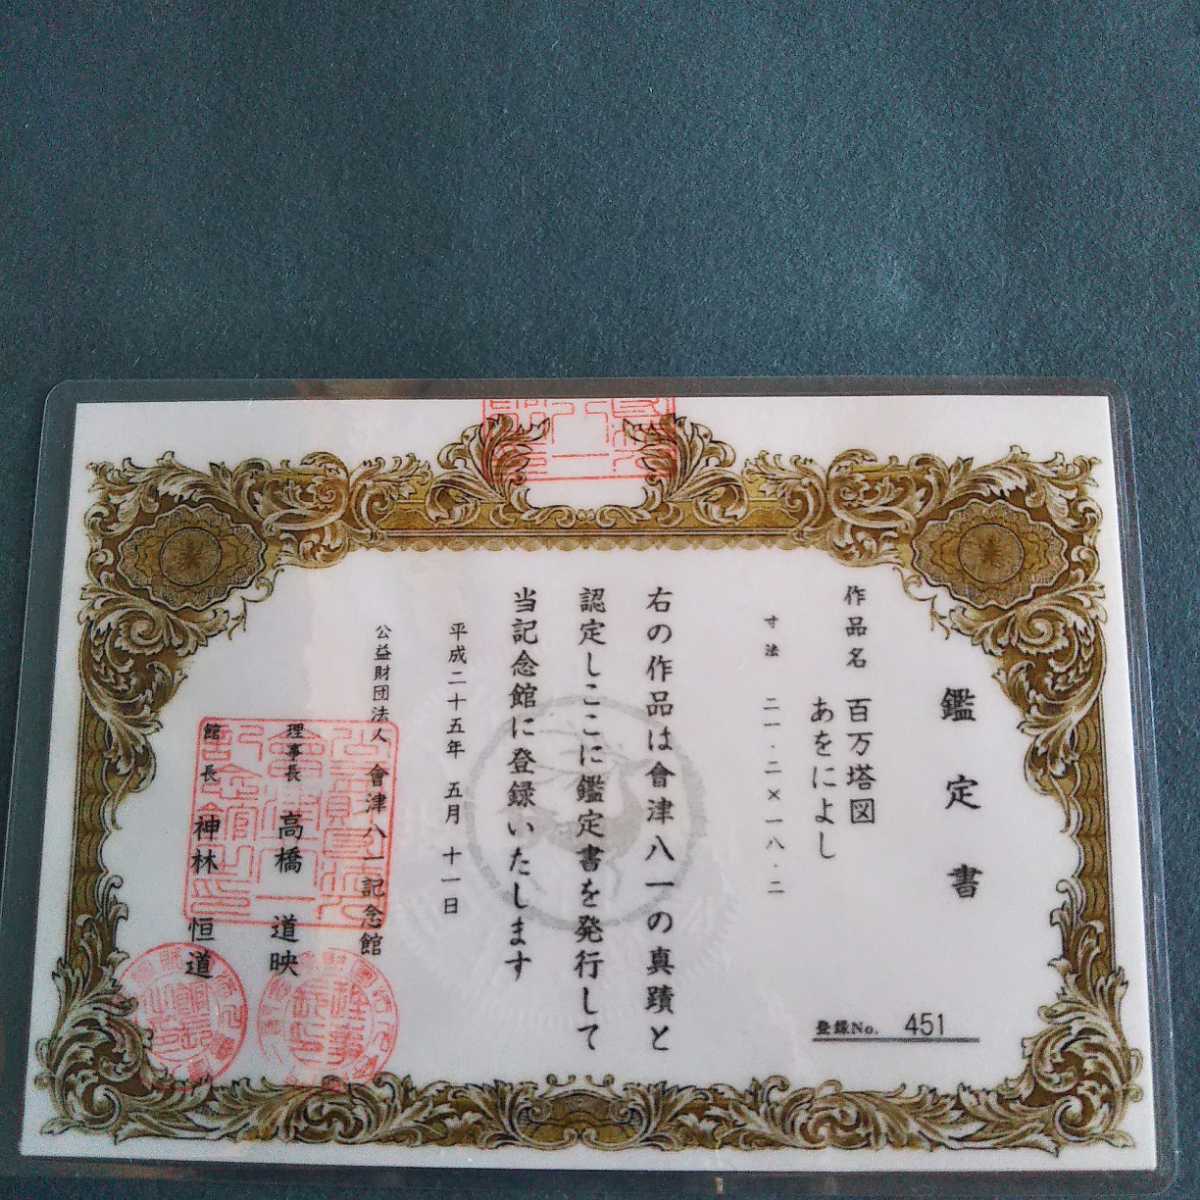 鑑定書
作品名 百万塔図
あをによし
寸法 二一・二×一八・二
登録No. 451
右の作品は會津八一の真蹟と
認定しここに鑑定書を発行して
当記念館に登録いたします
平成二十五年 五月 十一日
公益財団法人 會津八一記念館
理事長 高橋 道映
館長 神林 恒道